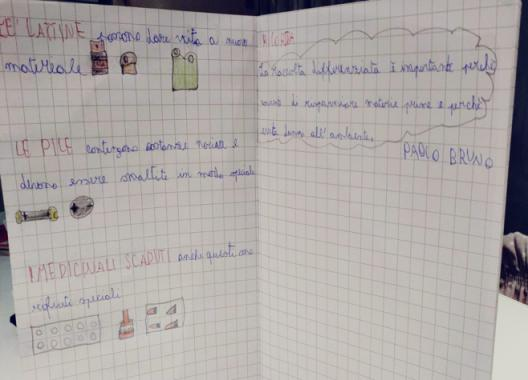 LE LATTINE possono dare vita a nuovo
materiale
LE PILE contengono sostanze nocive e
devono essere smaltite in modo speciale
I MEDICINALI SCADUTI anche questi sono
rifiuti speciali
RICORDA
La raccolta differenziata è importante perché
di risparmiare materie prime e perché
danni all'ambiente.
PAOLO BRUNO